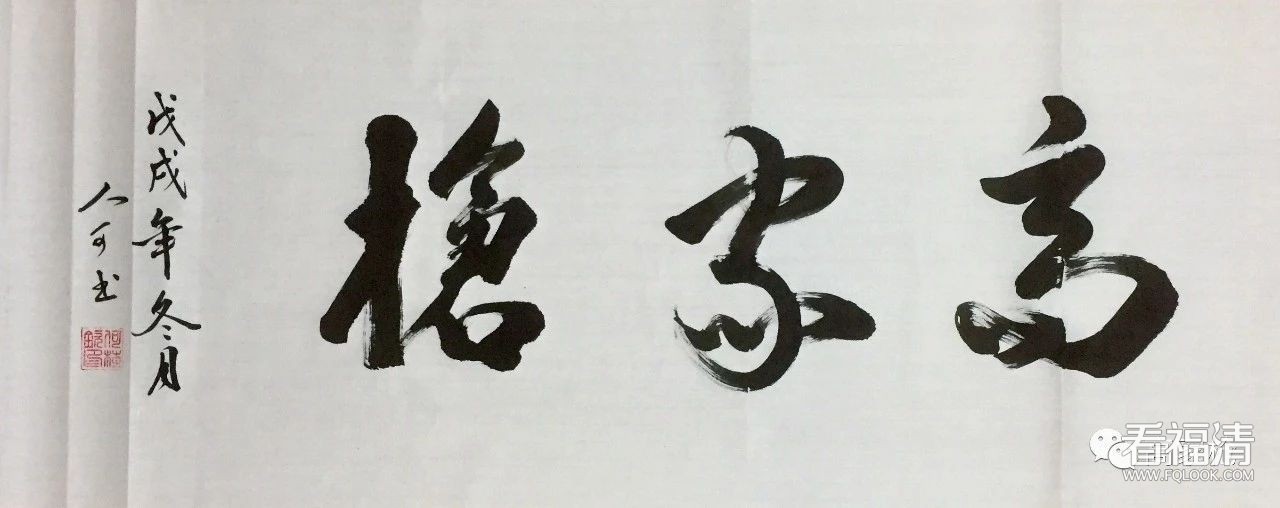 高家槍
戊戌年冬月
人可书
看福清
WWW.FQLOOK.COM